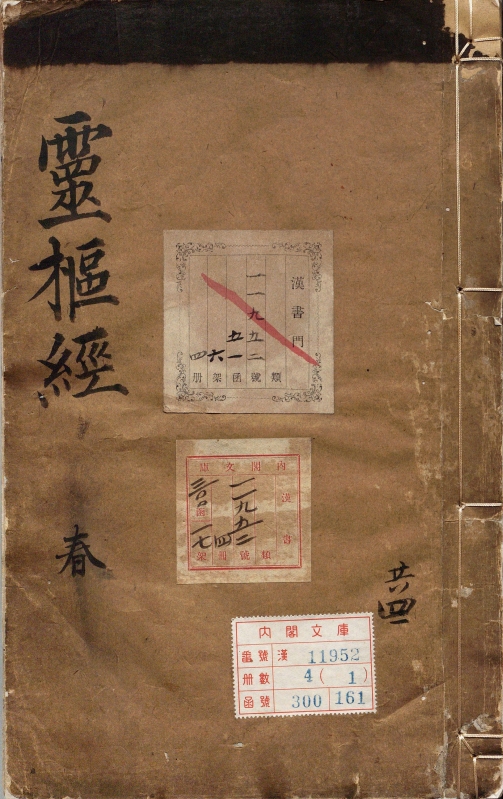 靈樞經
春
共四
漢書門
類
一一九五二號
五一函
六架
四册
內閣文庫
漢書
類
一一九五二號
四冊
三〇〇函
一七架
內閣文庫
番號 漢 11952
册數 4(1)
函號 300 161